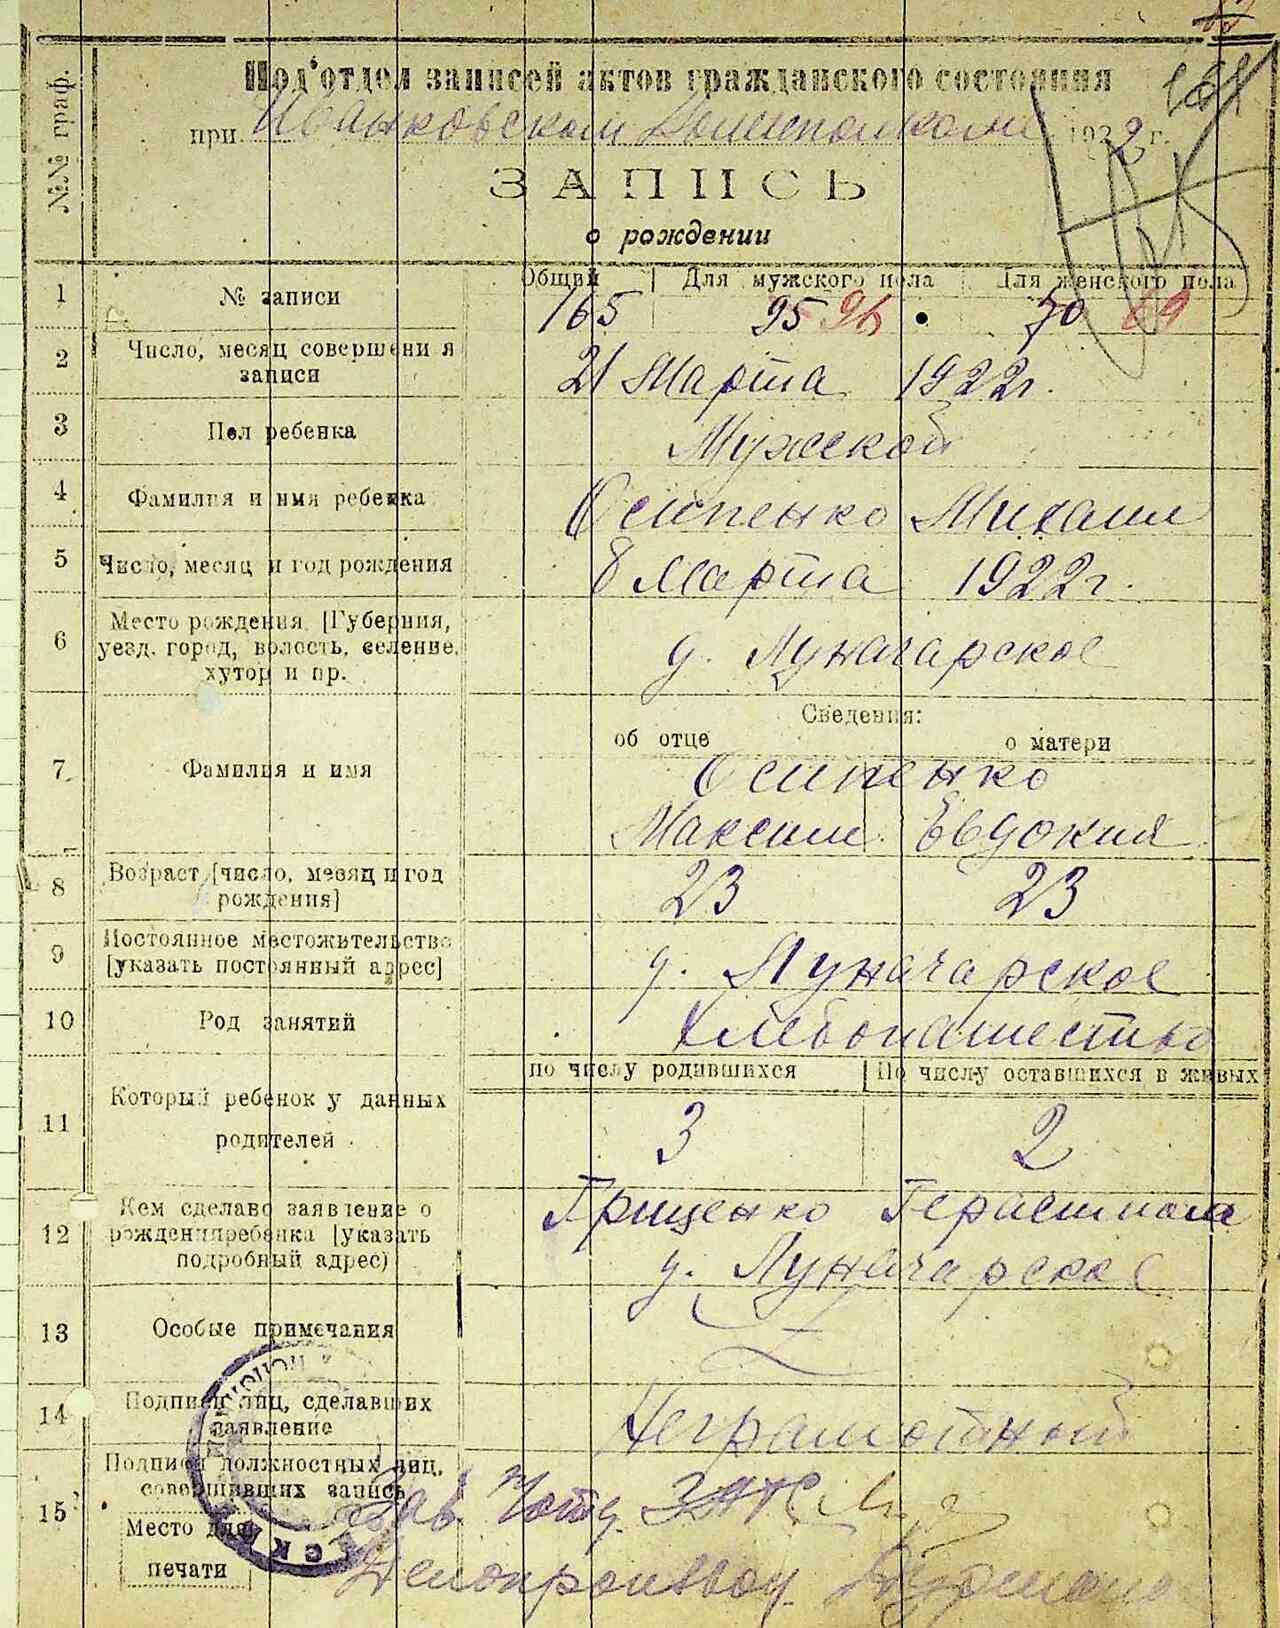 №№ граф.
Под'отдел записей актов гражданского состояния
при Иванковском 1922 г.
ЗАПИСЬ
о рождении
Общий Для мужского пола Для женского пола
1 № записи 165 95 96 70 69
2 Число, месяц совершения записи
21 Марта 1922г.
3 Пол ребенка Мужской
4 Фамилия и имя ребенка Осипенко Михаил
5 Число, месяц и год рождения 8 Марта 1922г.
6 Место рождения [Губерния,
уезд, город, волость, селение,
хутор и пр.
д. Луначарское
Сведения:
об отце о матери
7 Фамилия и имя Осипенко
Максим Евдокия
8 Возраст [число, месяц и год
рождения] 23 23
9 Постоянное местожительство
[указать постоянный адрес] д. Луначарское
10 Род занятий Хлебопашество
по числу родившихся По числу оставшихся в живых
11 Который ребенок у данных
родителей 3 2
12 Кем сделано заявление о
рождении ребенка [указать
подробный адрес)
Грищенко Герасима
д. Луначарское
13 Особые примечания
14 Подписи лиц, сделавших
заявление Неграмотный
15 Подписи должностных лиц,
совершивших запись
Зав. ЗАГС
Место для
печати
Делопроизвод.